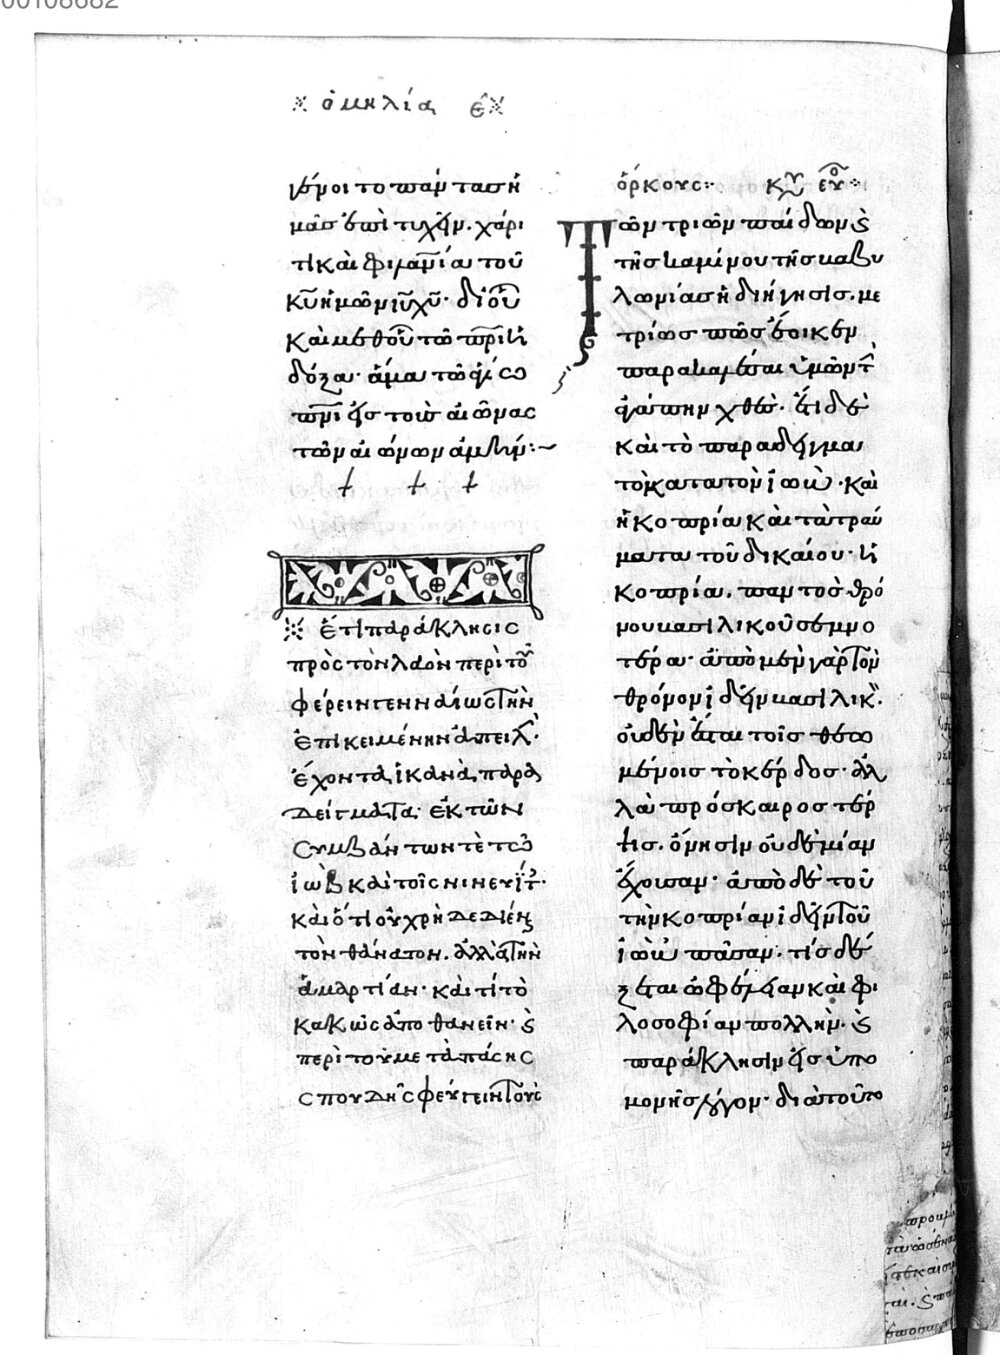 00108682
ὁμηλία ε̅
γένοι το παν τασ ἡ
μᾶσ ἐπὶ τυχεῖν. χάρι
τι καὶ φιλαν̅ια τοῦ
κῦ ἡμῶν ιῦ χῦ· δι οὗ
καὶ μεθ οὗ τῶ πρ̅ι ἡ
δόξα· ἅμα τῶ ἁγίω
πν̅ι εἰσ τοὺσ αἰῶνασ
τῶν αἰώνων ἀμήν:~
Ἔτι παράκλησισ
πρὸσ τὸν λαὸν περὶ τοῦ
φέρειν γενναίωσ τὴν
ἐπικειμένην ἀπειλ`·
ἔχοντα ἱκανὰ παρα
δείγματα· ἐκ τῶν
συμβάντων τὲ τῶ
ἰὼβ καὶ τοῖσ νινευίτ·
καὶ ὅτι οὐ χρὴ δεδιέναι
τὸν θάνατον. ἀλλὰ τὴν
ἁμαρτίαν· καὶ τί τὸ
κακῶσ ἀποθανεῖν· ϛ
περὶ τοῦ μετὰ πάσησ
σπουδῆσ φεύγειν τοὺσ
ὅρκουσ: κυ ευ
Τῶν τριῶν παίδων ϛ
τῆσ καμίνου τῆσ βαβυ
λωνίασ ἡ διήγησισ. με
τρίωσ πῶσ ἔοικεν
παρακαλέσαι ὑμῶν τ`
ἀγάπην χθὲσ· ἔτι δὲ
καὶ τὸ παράδειγμα
τὸ κατα τὸν ἰὼβ· καὶ
ἡ κοπρία καὶ τὰ τραύ
ματα τοῦ δικαίου· ἡ
κοπρία. παντὸσ θρό
νου βασιλικοῦ σεμνο
τέρα· ἀπὸ μὲν γὰρ τοῦ
θρόνον ἰδεῖν βασιλικ`·
οὐδὲν ἔσται τοῖσ θεω
μένοισ τὸ κέρδοσ· ἀλ
λὰ πρόσκαιροσ τέρ
ψισ. ὄνησιν οὐδεμίαν
ἔχουσαν· ἀπὸ δὲ τοῦ
τὴν κοπρίαν ἰδεῖν τοῦ
ἰὼβ πᾶσαν. τίσ δέ
ξεται ὠφέλειαν καὶ φι
λοσοφίαν πολλὴν· ϛ
παράκλησιν εἰσ ὑπο
μονῆσ λόγον· διὰ τοῦτο